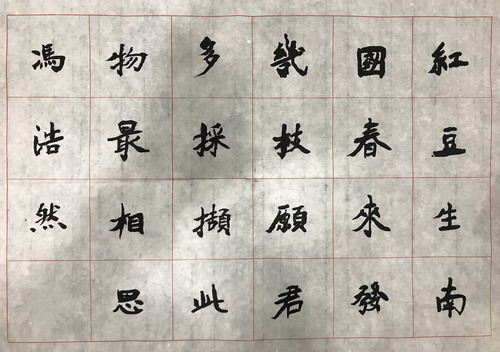 紅豆生南
國春來發
幾枝願君
多採擷此
物最相思
馮浩然